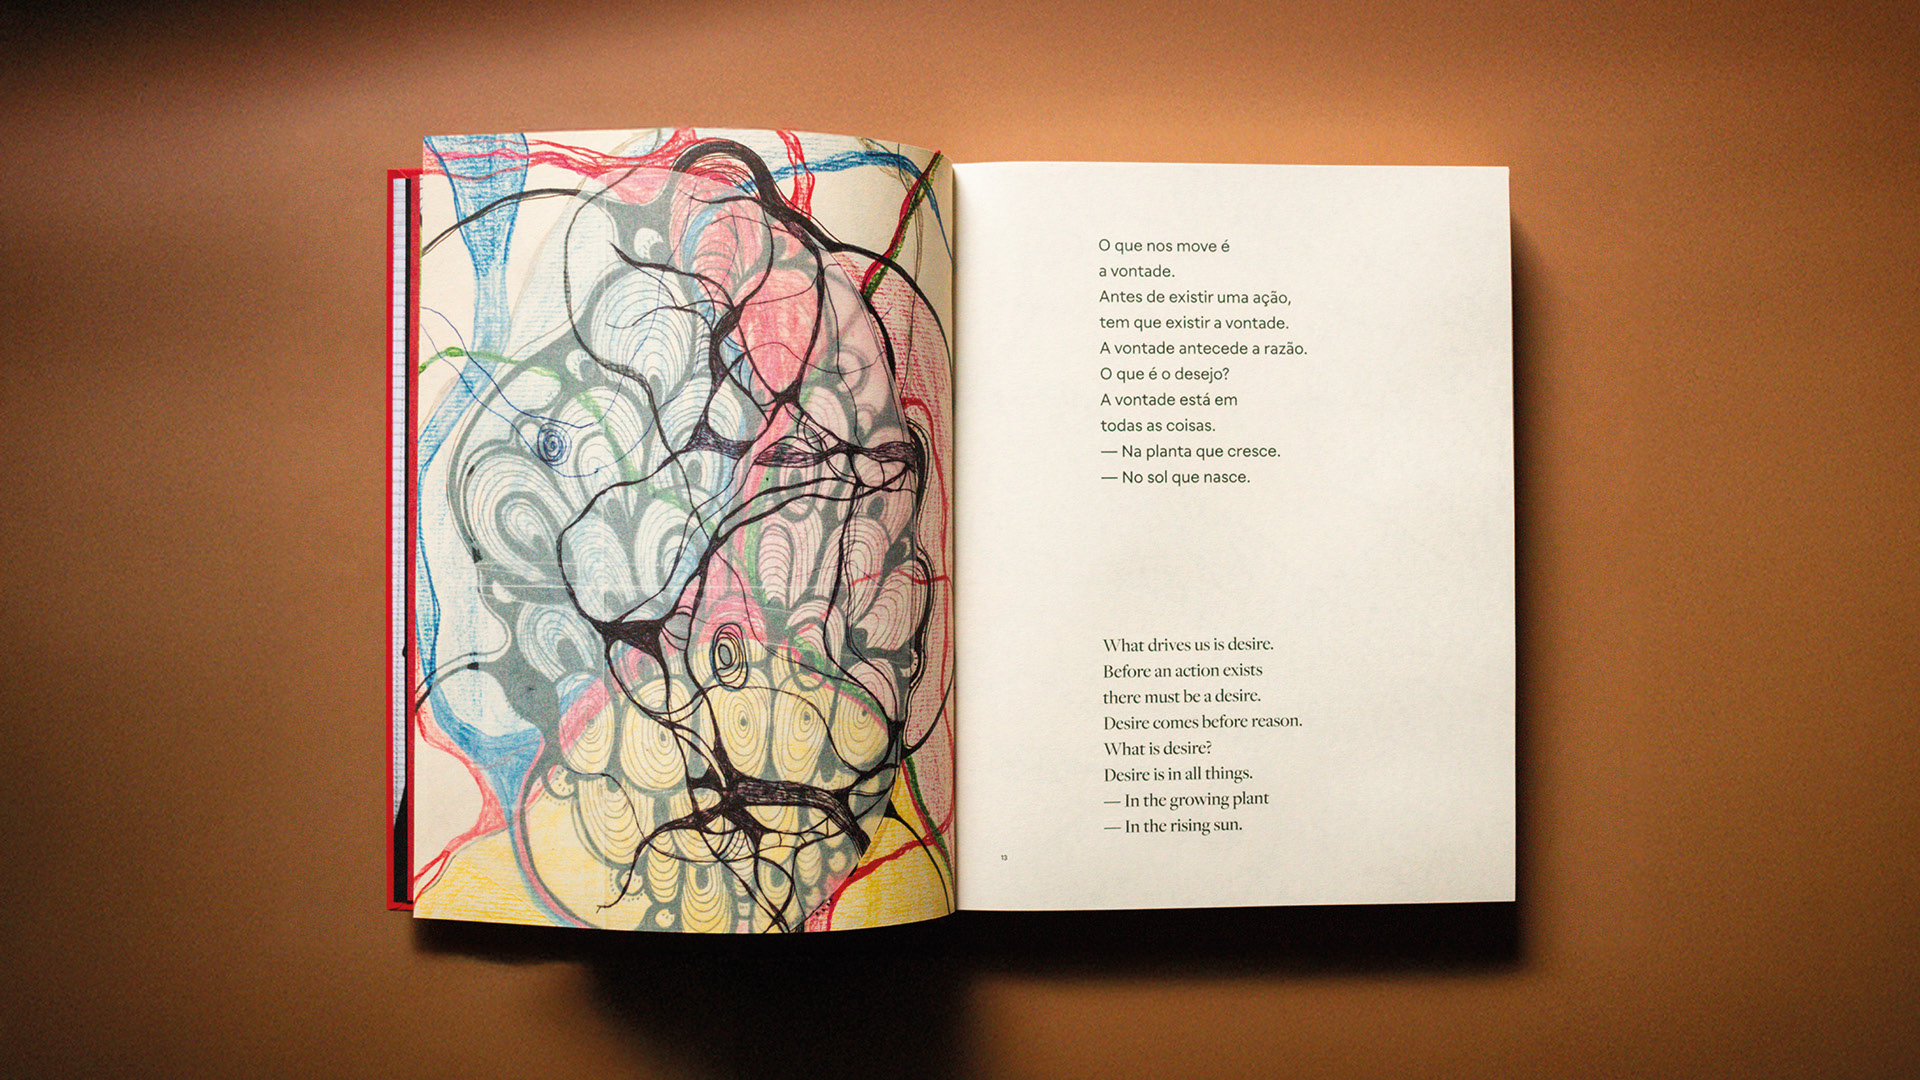 O que nos move é
a vontade.
Antes de existir uma ação,
tem que existir a vontade.
A vontade antecede a razão.
O que é o desejo?
A vontade está em
todas as coisas.
— Na planta que cresce.
— No sol que nasce.
What drives us is desire.
Before an action exists
there must be a desire.
Desire comes before reason.
What is desire?
Desire is in all things.
— In the growing plant
— In the rising sun.
13